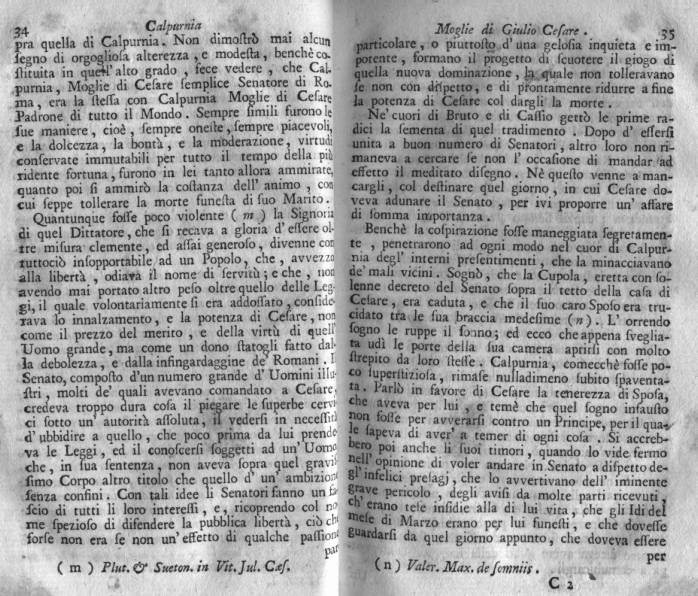 34 Calpurnia
pra quella di Calpurnia. Non dimostrò mai alcun
segno di orgogliosa alterezza, e modesta, benchè co-
stituita in quest'alto grado, fece vedere, che Cal-
purnia, Moglie di Cesare semplice Senatore di Ro-
ma, era la stessa con Calpurnia Moglie di Cesare
Padrone di tutto il Mondo. Sempre simili furono le
sue maniere, cioè, sempre oneste, sempre piacevoli,
e la dolcezza, la bontà, e la moderazione, virtudi
conservate immutabili per tutto il tempo della più
ridente fortuna, furono in lei tanto allora ammirate,
quanto poi si ammirò la costanza dell'animo, con
cui seppe tollerare la morte funesta di suo Marito.
Quantunque fosse poco violente (m) la Signoria
di quel Dittatore, che si recava a gloria d'essere ol-
tre misura clemente, ed assai generoso, divenne con
tuttociò insopportabile ad un Popolo, che, avvezzo
alla libertà, odiava il nome di servitù; e che, non
avendo mai portato altro peso oltre quello delle Leg-
gi, il quale volontariamente si era addossato, conside-
rava lo innalzamento, e la potenza di Cesare, non
come il prezzo del merito, e della virtù di quell'
Uomo grande, ma come un dono statogli fatto dal-
la debolezza, e dalla infingardaggine de' Romani. Il
Senato, composto d'un numero grande d'Uomini illu-
stri, molti de' quali avevano comandato a Cesare,
credeva troppo dura cosa il piegare le superbe cervi-
ci sotto un'autorità assoluta, il vedersi in necessità
d'ubbidire a quello, che poco prima da lui prende-
va le Leggi, ed il conoscersi soggetti ad un'Uomo
che, in sua sentenza, non aveva sopra quel gravis-
simo Corpo altro titolo che quello d'un'ambizione
senza confini. Con tali idee li Senatori fanno un fa-
scio di tutti li loro interessi, e, ricoprendo col no-
me spezioso di difendere la pubblica libertà, ciò che
forse non era se non un'effetto di qualche passione
par-
(m) Plut. & Sueton. in Vit. Jul. Cæs.
Moglie di Giulio Cesare. 35
particolare, o piuttosto d'una gelosia inquieta e im-
potente, formano il progetto di scuotere il giogo di
quella nuova dominazione, la quale non tolleravano
se non con dispetto, e di prontamente ridurre a fine
la potenza di Cesare col dargli la morte.
Ne' cuori di Bruto e di Cassio gettò le prime ra-
dici la sementa di quel tradimento. Dopo d'essersi
unita a buon numero di Senatori, altro loro non ri-
maneva a cercare se non l'occasione di mandar ad
effetto il meditato disegno. Nè questo venne a man-
cargli, col destinare quel giorno, in cui Cesare do-
veva adunare il Senato, per ivi proporre un'affare
di somma importanza.
Benchè la cospirazione fosse maneggiata segretamen-
te, penetrarono ad ogni modo nel cuor di Calpur-
nia degl'interni presentimenti, che la minacciavano
de' mali vicini. Sognò, che la Cupola, eretta con so-
lenne decreto del Senato sopra il tetto della casa di
Cesare, era caduta, e che il suo caro Sposo era tru-
cidato tra le sua braccia medesime (n). L'orrendo
sogno le ruppe il sonno; ed ecco che appena sveglia-
ta udì le porte della sua camera aprirsi con molto
strepito da loro stesse. Calpurnia, comecchè fosse po-
co superstiziosa, rimase nulladimeno subito spaventa-
ta. Parlò in favore di Cesare la tenerezza di Sposa,
che aveva per lui, e temè che quel sogno infausto
non fosse per avverarsi contro un Principe, per il qua-
le sapeva di aver'a temer di ogni cosa. Si accreb-
bero poi anche li suoi timori, quando lo vide fermo
nell'opinione di voler andare in Senato a dispetto de-
gl'infelici presagj, che lo avvertivano dell'imminente
grave pericolo, degli avisi da molte parti ricevuti,
ch'erano tese insidie alla di lui vita, che gli Idi del
mese di Marzo erano per lui funesti, e che dovesse
guardarsi da quel giorno appunto, che doveva essere
per
(n) Valer. Max. de somniis.
C 2